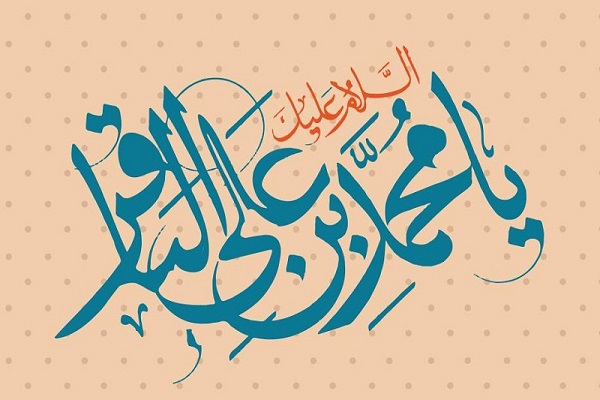 السَّلامُ عَلَيكَ
يا مُحَمَّدِ بنِ عَلي الباقر